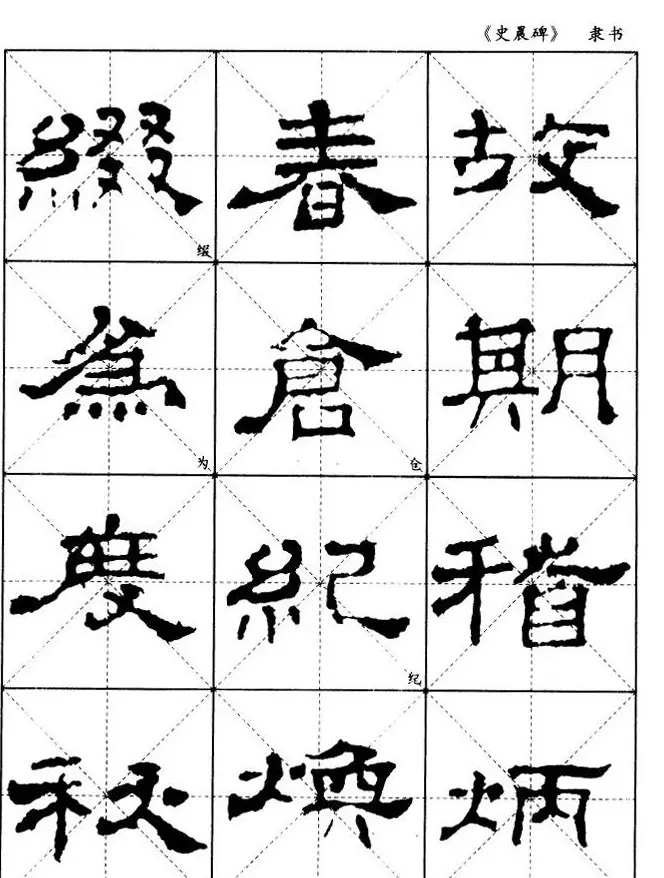 《史晨碑》 隶书
故期稽炳
春倉仓紀纪煥
綴缀為为度秋